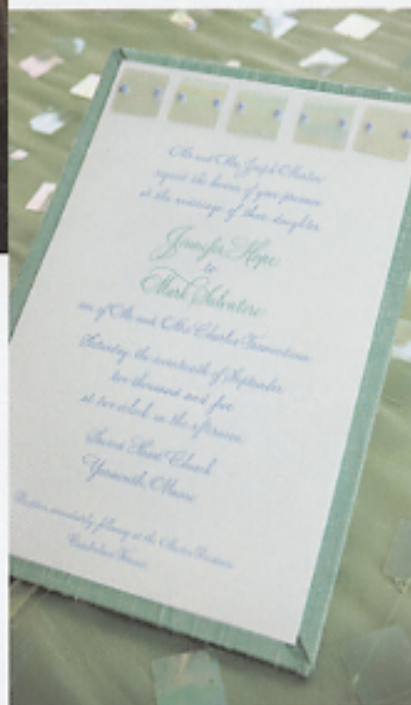 Mr. and Mrs. Joseph
request the honor of your presence
at the marriage of their daughter
Jennifer Hope
to
Mark Salvatore
son of Mr. and Mrs. Charles
Saturday, the seventeenth of September
two thousand and five
at two o'clock in the afternoon
Sacred Heart Church
Yarmouth, Maine
Reception immediately following at the